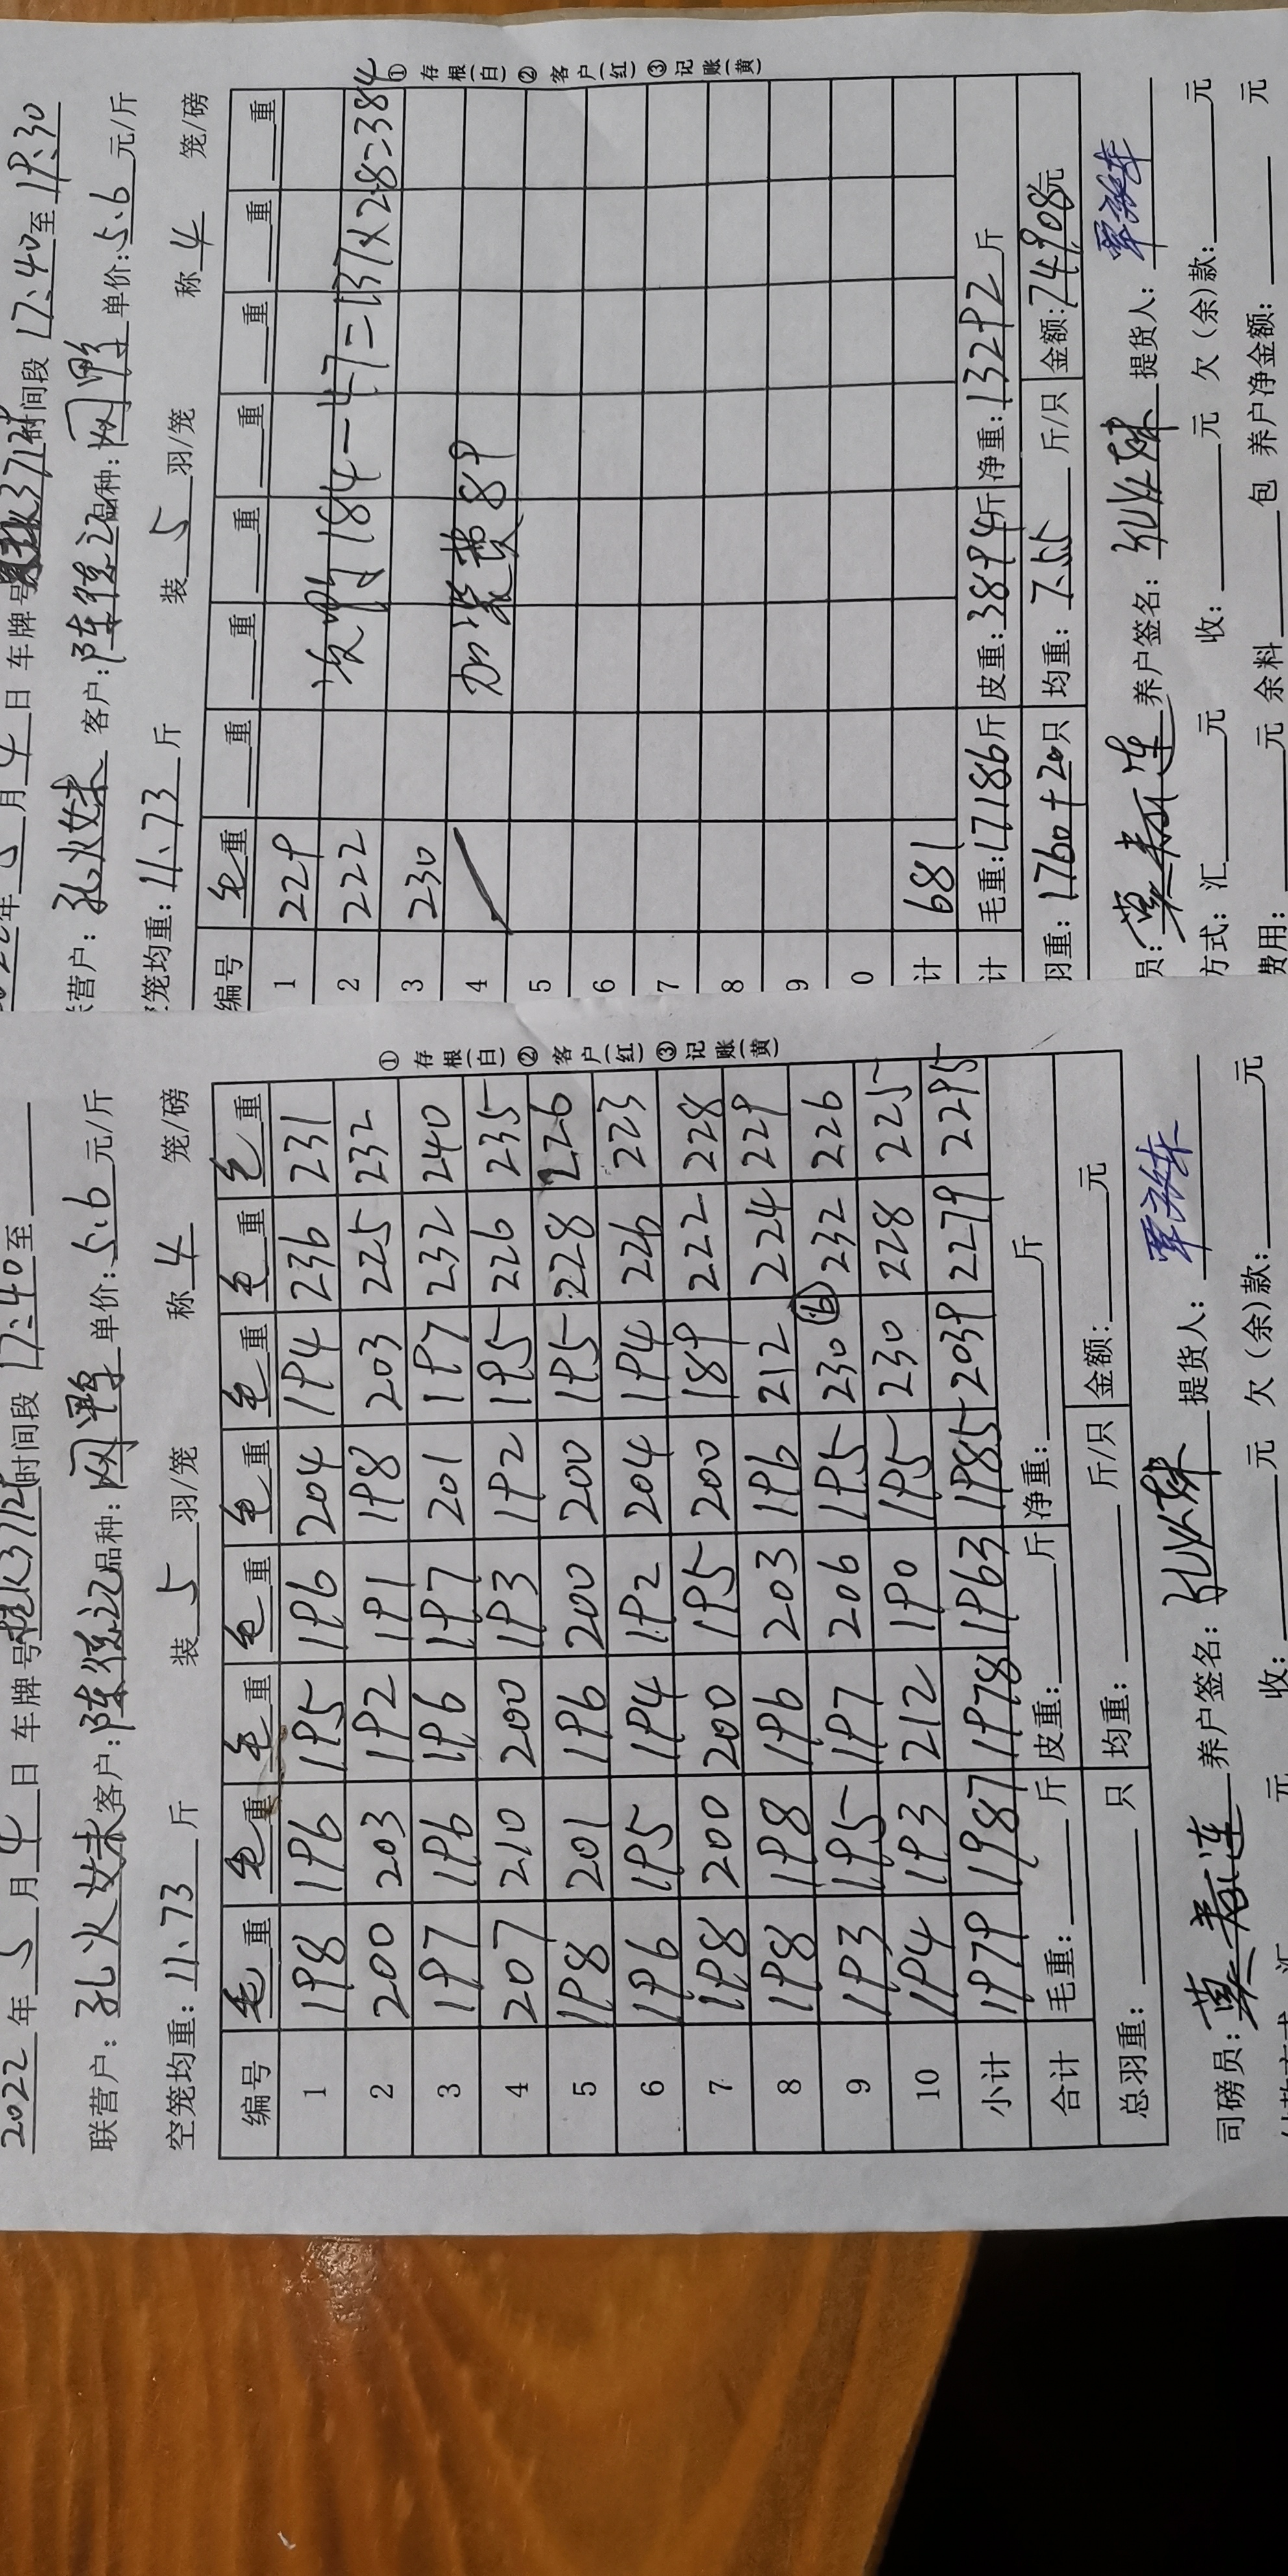 2022年5月4日 车牌号 时间段17:40至
联营户:孔火妹 客户: 品种: 单价:5.6元/斤
空笼均重:11.73斤 装5羽/笼 称4笼/磅
编号 毛重 毛重 毛重 毛重 毛重 毛重 毛重 毛重
1 198 196 195 196 204 194 236 231
2 200 203 192 191 198 203 225 232
3 197 196 196 197 201 197 232 240
4 207 210 200 193 192 195 226 235
5 198 201 196 200 200 195 228 226
6 196 195 194 192 204 194 226 223
7 198 200 200 195 200 189 222 228
8 198 198 196 203 196 212 224 229
9 193 195 197 206 195 230 232 226
10 194 193 212 190 195 230 228 225
小计 1979 1987 1978 1963 1985 2039 2279 2295
合计 毛重:斤 皮重:斤 净重:斤
总羽重:只 均重:斤/只 金额:元
司磅员: 养户签名: 提货人:
收:元 欠(余)款:元
①存根(白)②客户(红)③记账(黄)
年 月4日 车牌号 时间段17:40至19:30
营户:孔火妹 客户: 品种: 单价:5.6元/斤
笼均重:11.73斤 装5羽/笼 称4笼/磅
编号 毛重 重 重 重 重 重 重 重
1 229
2 222 次鸭184-47=137×2.8=384
3 230
4 加装费89
5
6
7
8
9
0
计 681
计 毛重:17186斤 皮重:3894斤 净重:13292斤
羽重:1760+20只 均重:7.55斤/只 金额:74908元
员: 养户签名: 提货人:
方式:汇元 收:元 欠(余)款:元
费用:元 余料包 养户净金额:元
①存根(白)②客户(红)③记账(黄)